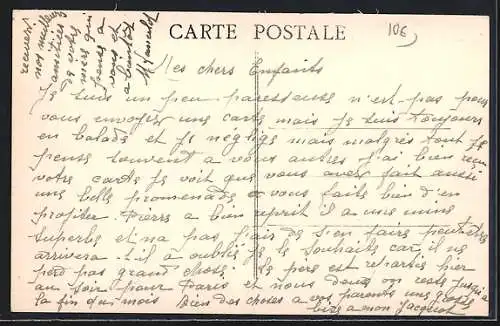 CARTE POSTALE
10€
Mes chers Enfants
Je suis un peu paresseuse n'est-pas pour
vous envoyer une carte mais je suis toujours
en balade et je néglige mais malgrès tout je
pense souvent a vous autres j'ai bien reçu
votre carte je vois que vous avez fait aussi
une belle promenade vous faite bien d'en
profiter Pierre a bien il a une mine
superbe et n'a pas l'air de s'en faire
arrivera-t-il a oublié je le souhaite car il ne
perd pas grand chose le pere est reparti hier
au soir pour Paris et nous deux on reste jusqu'a
la fin du mois Bien des choses a vos parents une grosse
bise a mon Jacquot
recevez
nos meilleurs
amitiées
de votre
mère qui
pense a
vous et
a bientot
M